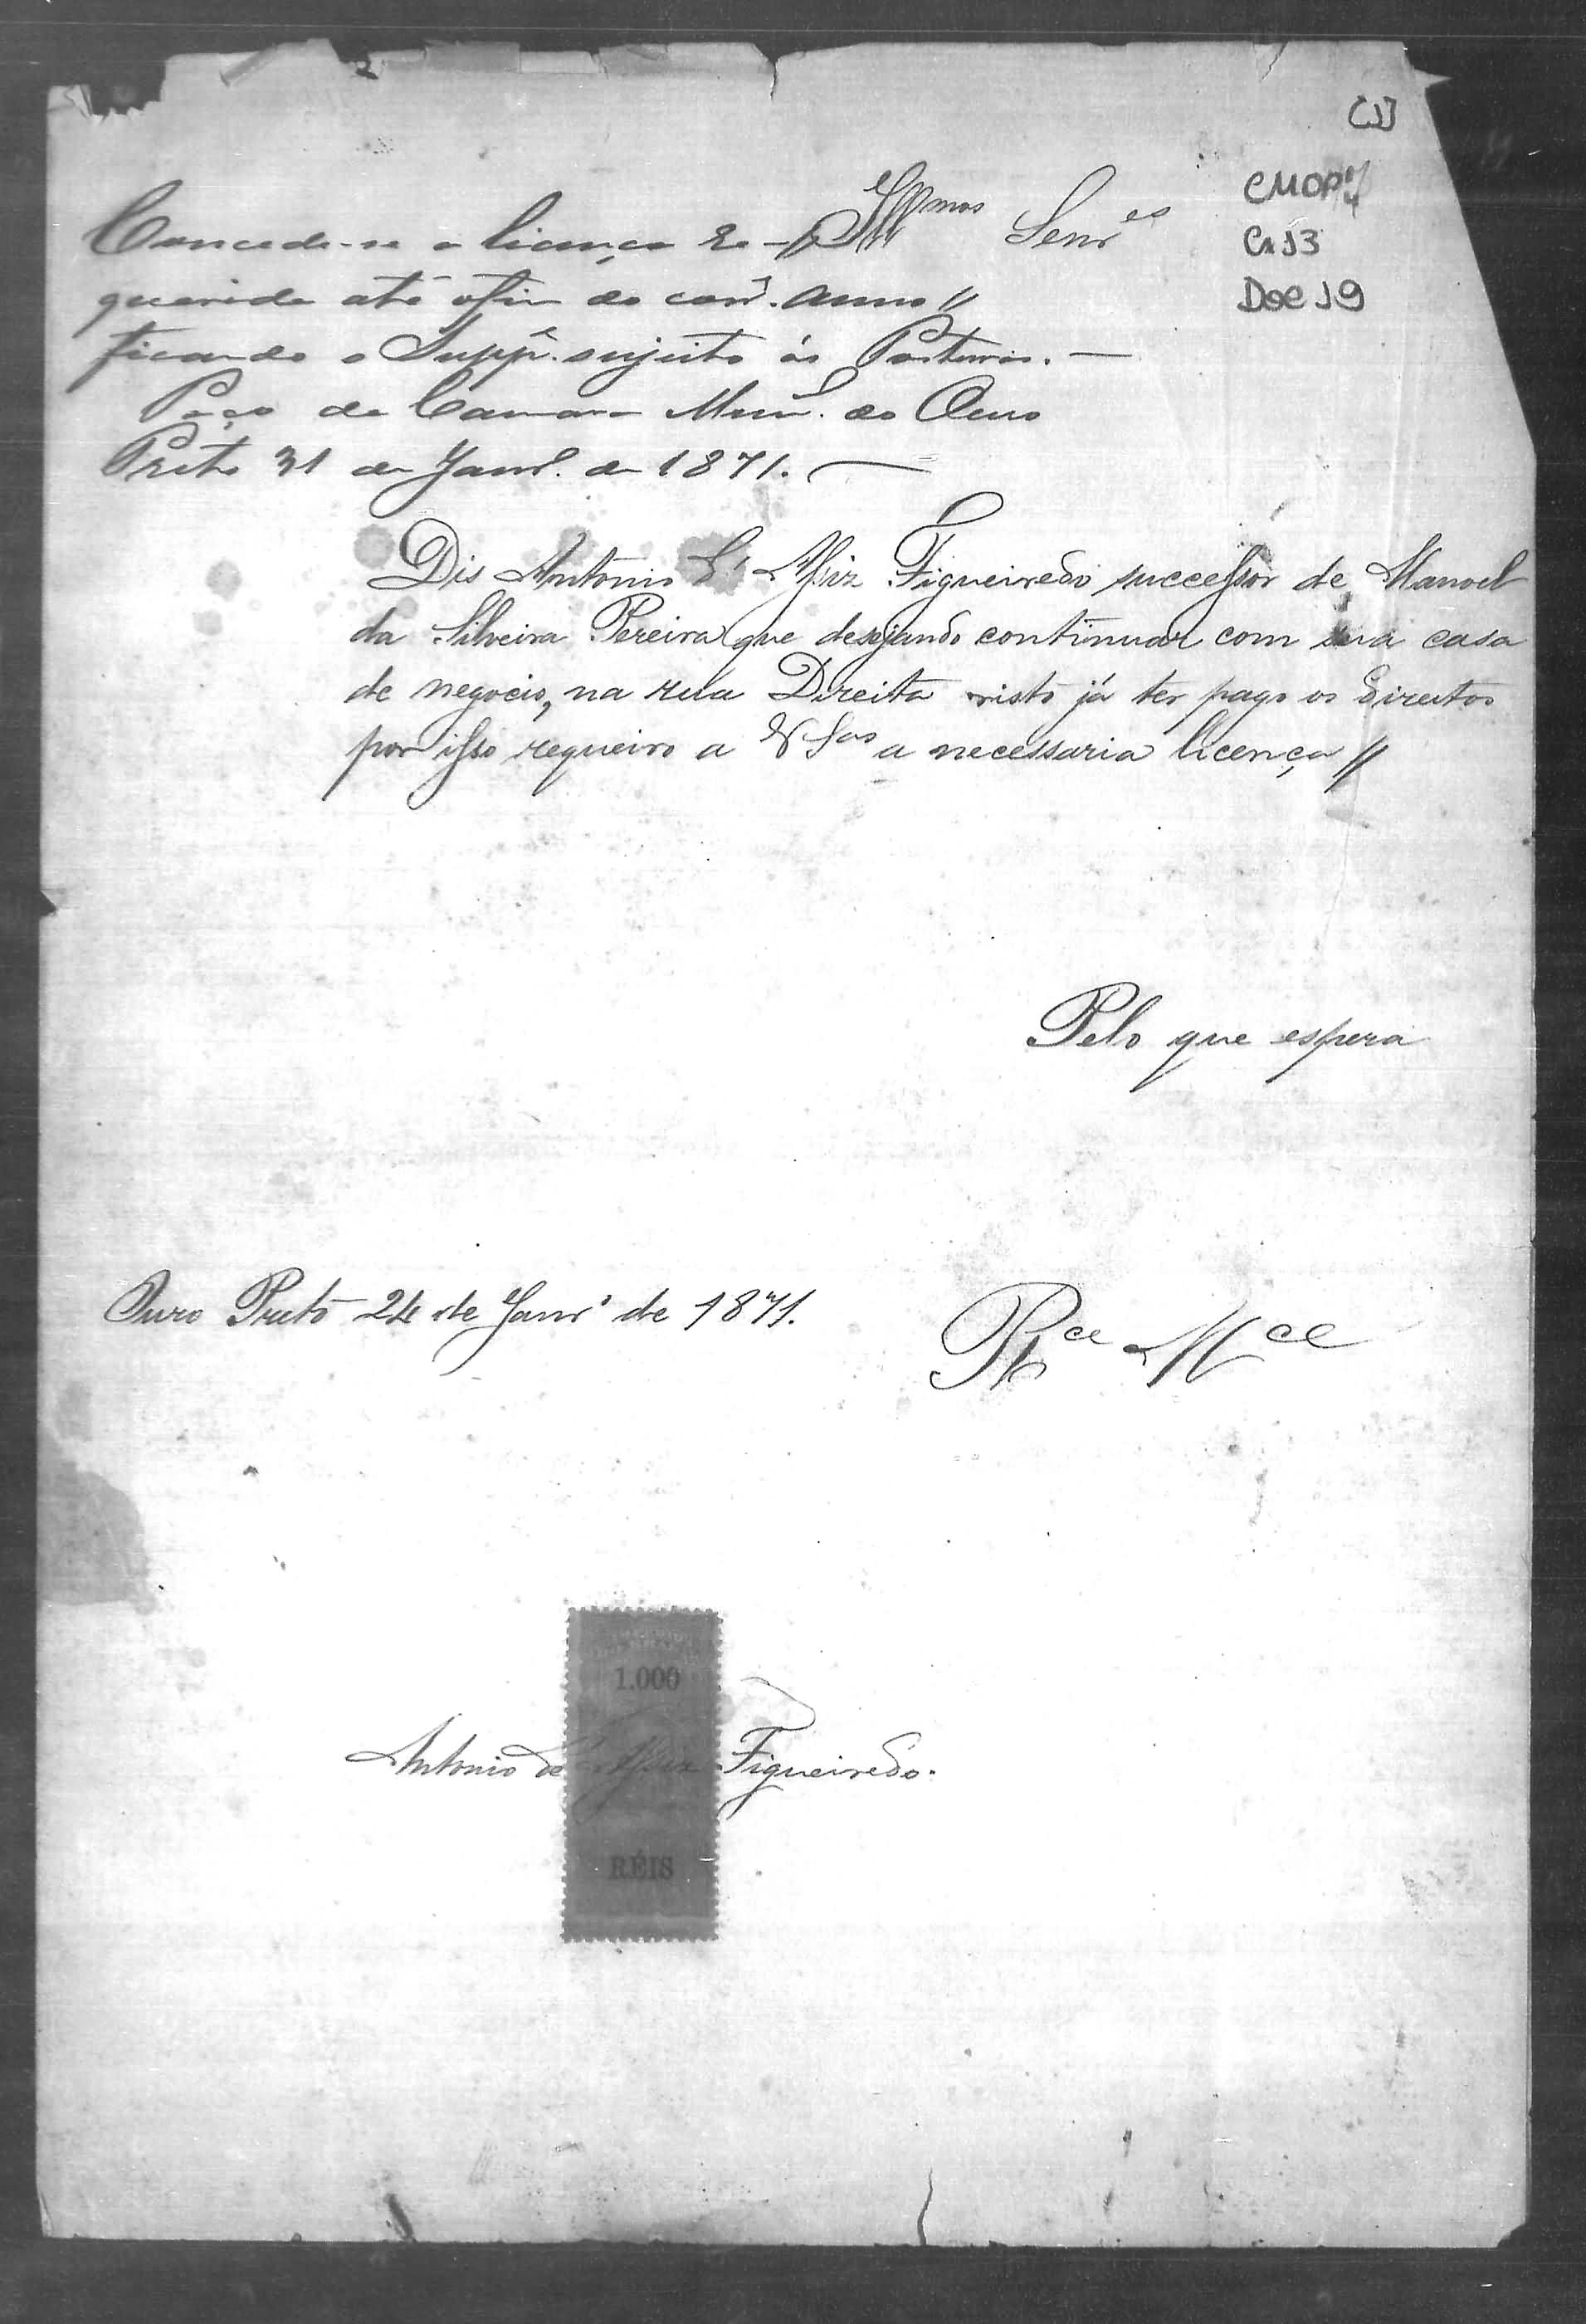 [1]
CMOP
Cx 13
Doc 19
Illmos Senres
Concede-se a licença re-
querida até o fim do corr. anno //
ficando o Suppe. sujeito ás Posturas. —
Paço da Camara Mun. do Ouro
Preto 31 de Janr. de 1871. —
Dis Antonio Figueiredo successor de Manoel
da Silveira Pereira que desejando continuar com sua casa
de negocio, na rua Direita visto já ter pago os Direitos
por isso requeiro a V Sas a necessaria licença //
Pelo que espera
Ouro Preto 24 de Janro de 1871.
R ce Mce
1.000
Antonio de Figueiredo.
RÉIS